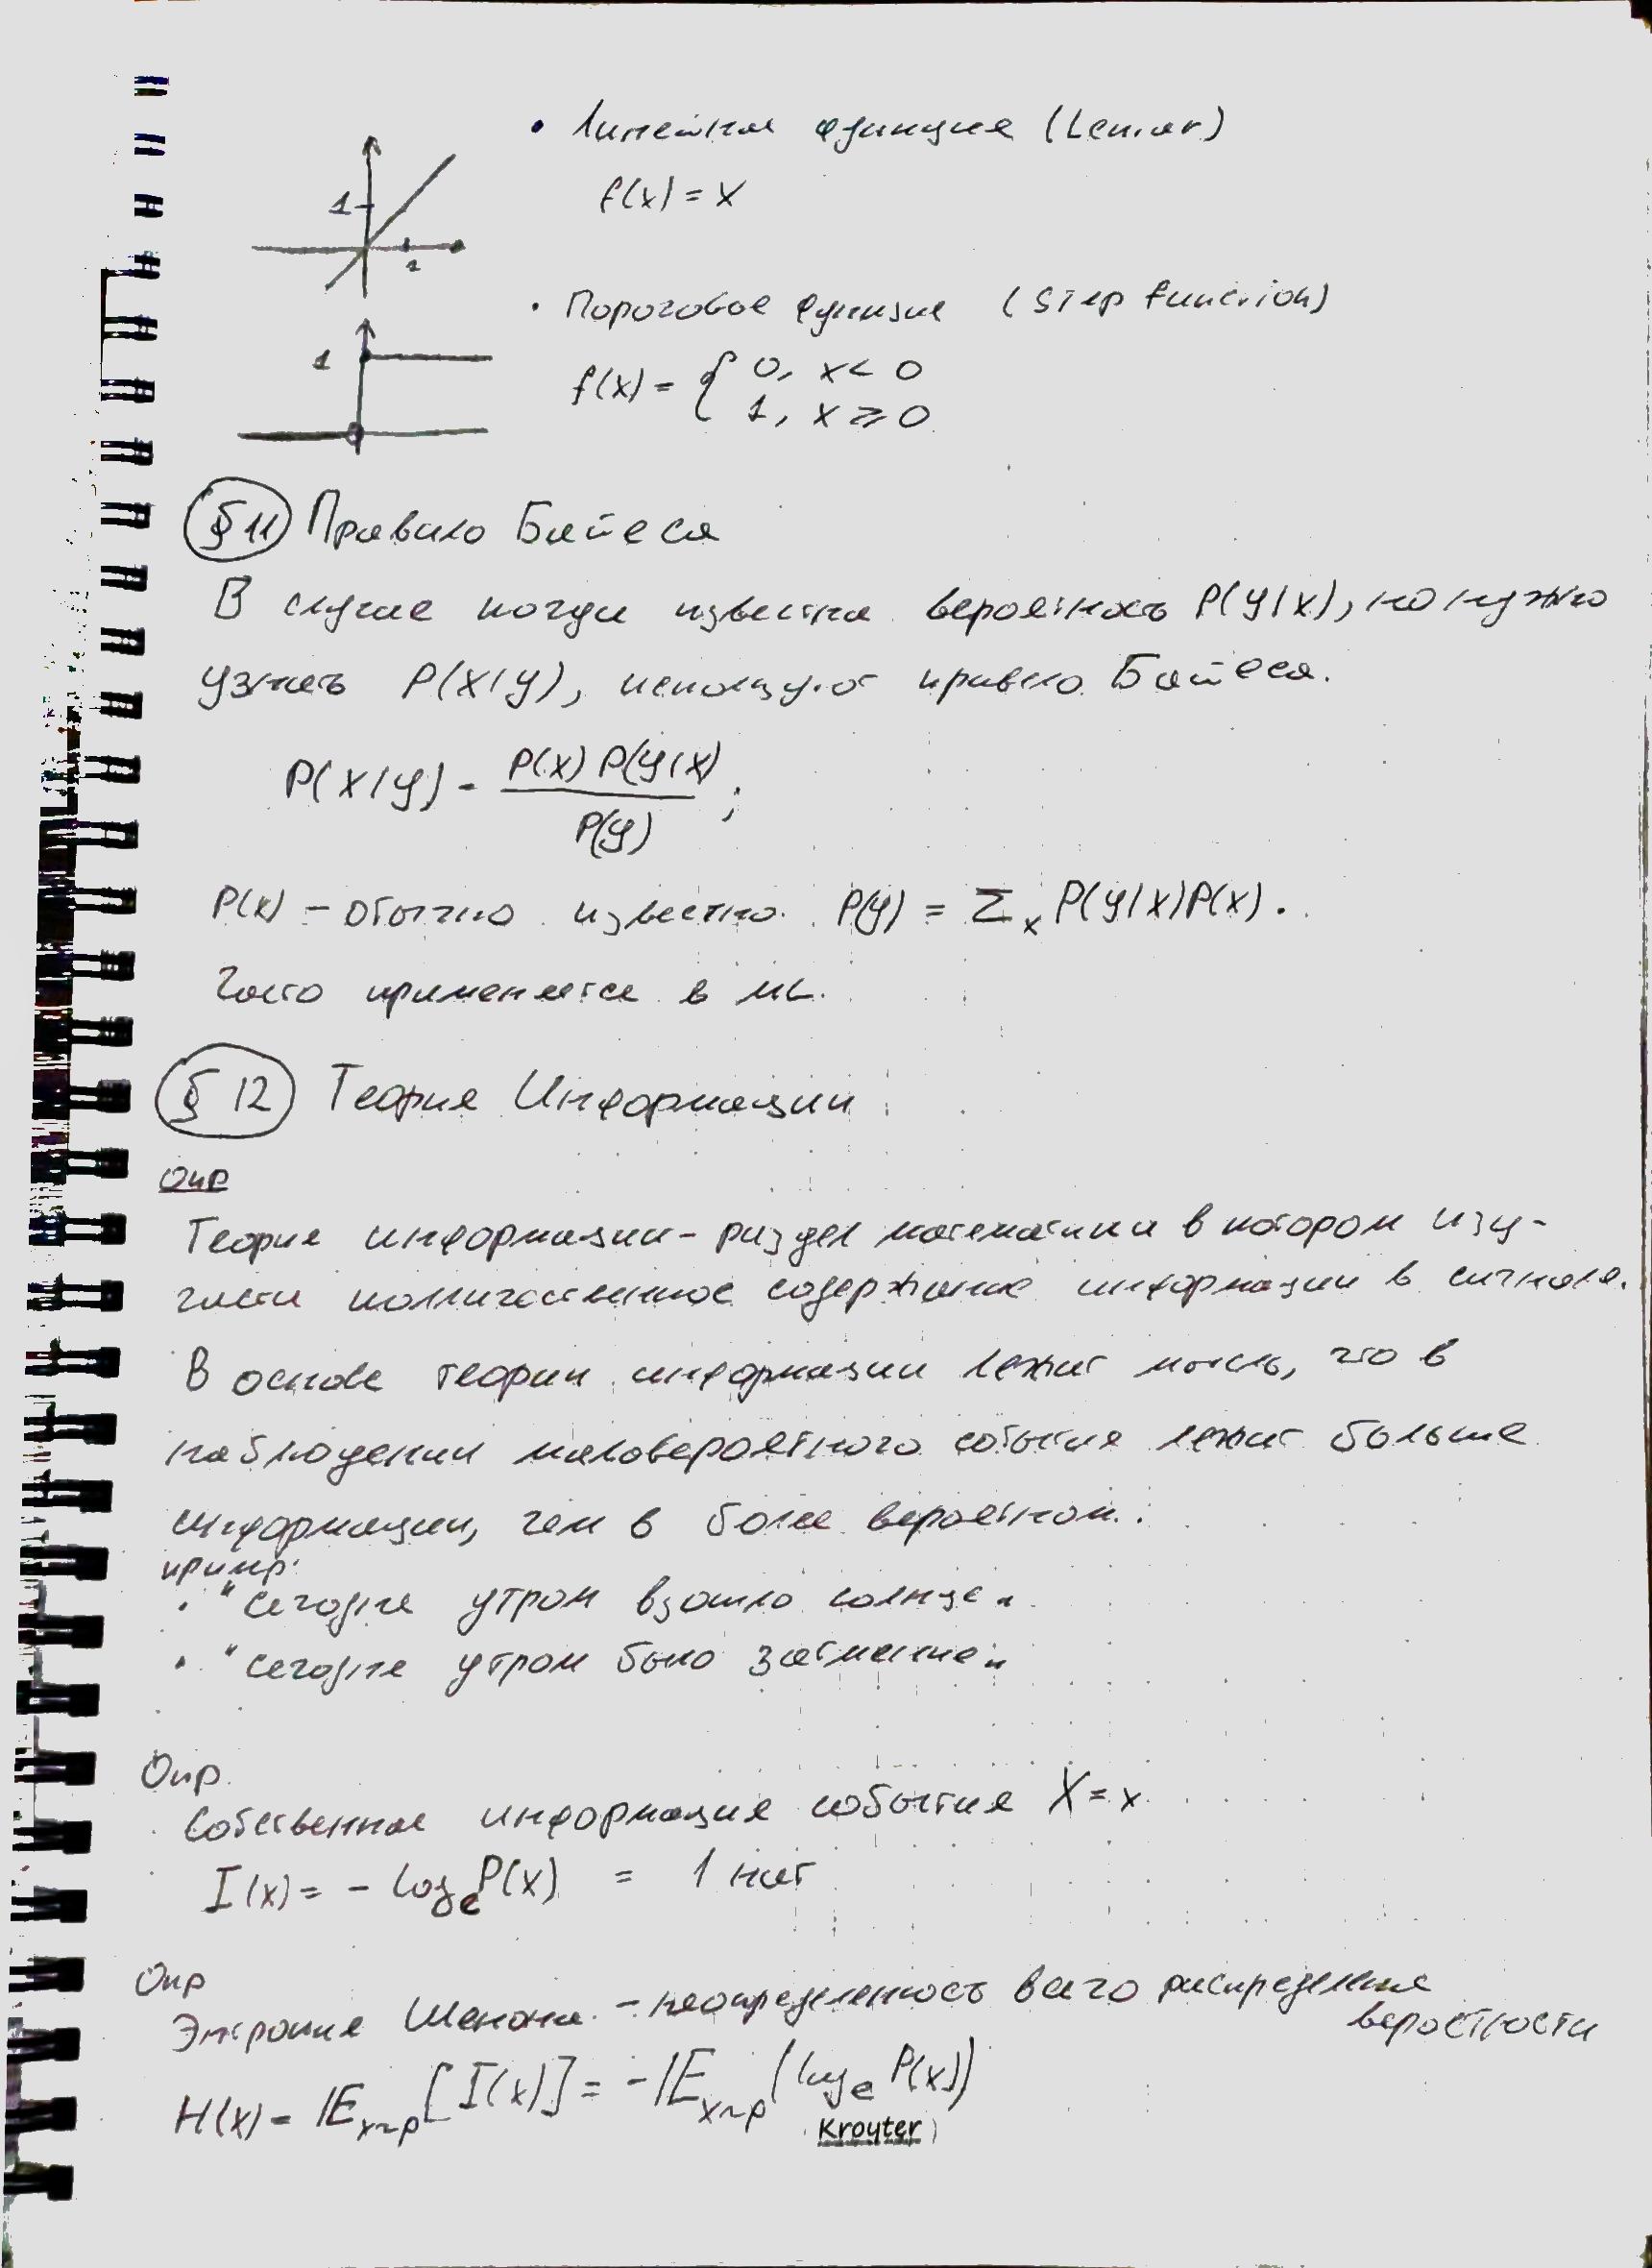 • Линейная функция (Leniar)
f(x) = x
1
1
• Пороговая функция (Step function)
1
f(x) = { 0, x < 0
1, x ⩾ 0
§ 11 Правило Байеса
В случае когда известна вероятность P(y|x), но нужно
узнать P(x|y), используют правило Байеса.
P(x|y) = P(x) P(y|x) / P(y) ;
P(x) – обычно известно. P(y) = Σₓ P(y|x)P(x).
Часто применяется в ML.
§ 12 Теория Информации
Опр
Теория информации – раздел математики в котором изу-
колличественное содержание информации в сигнале.
В основе теории информации лежит мысль, что в
наблюдении маловероятного события лежит больше
информации, чем в более вероятном.
пример:
• "сегодня утром взошло солнце"
• "сегодня утром было затмение"
Опр.
Собственная информация события X = x
I(x) = – logₑ P(x) = 1 нат
Опр
Энтропия Шенона – неопределенность всего распределения
веростности
H(x) = 𝔼ₓ~ₚ [I(x)] = –𝔼ₓ~ₚ (logₑ P(x))
Kroyter